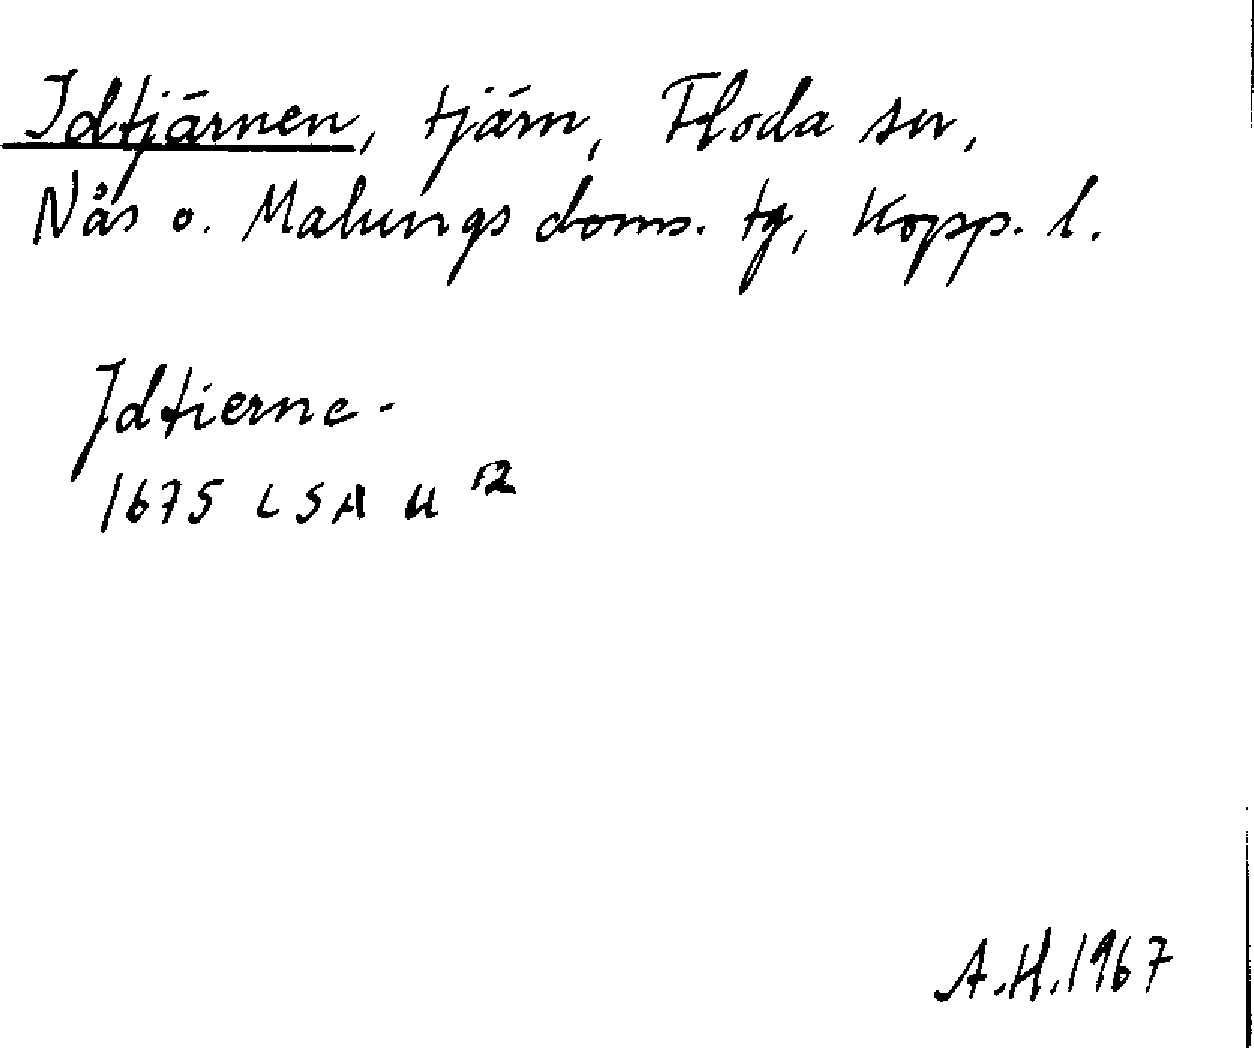 Idtjärnen, tjärn, Floda sn,
Nås o. Malungs doms. tg, Kopp. l.
Jdtierne-
1675 LSA U 12
A.H.1967